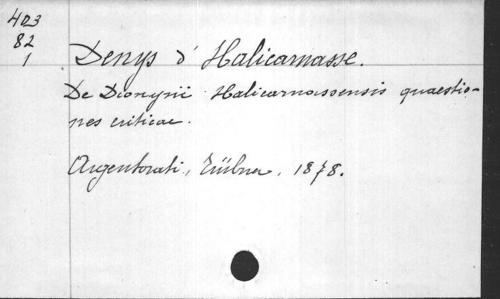 403
82
1
Denys d'Halicarnasse.
De Dionysii Halicarnassensis quaestio-
nes criticae.
Argentorati, Trübner, 1878.